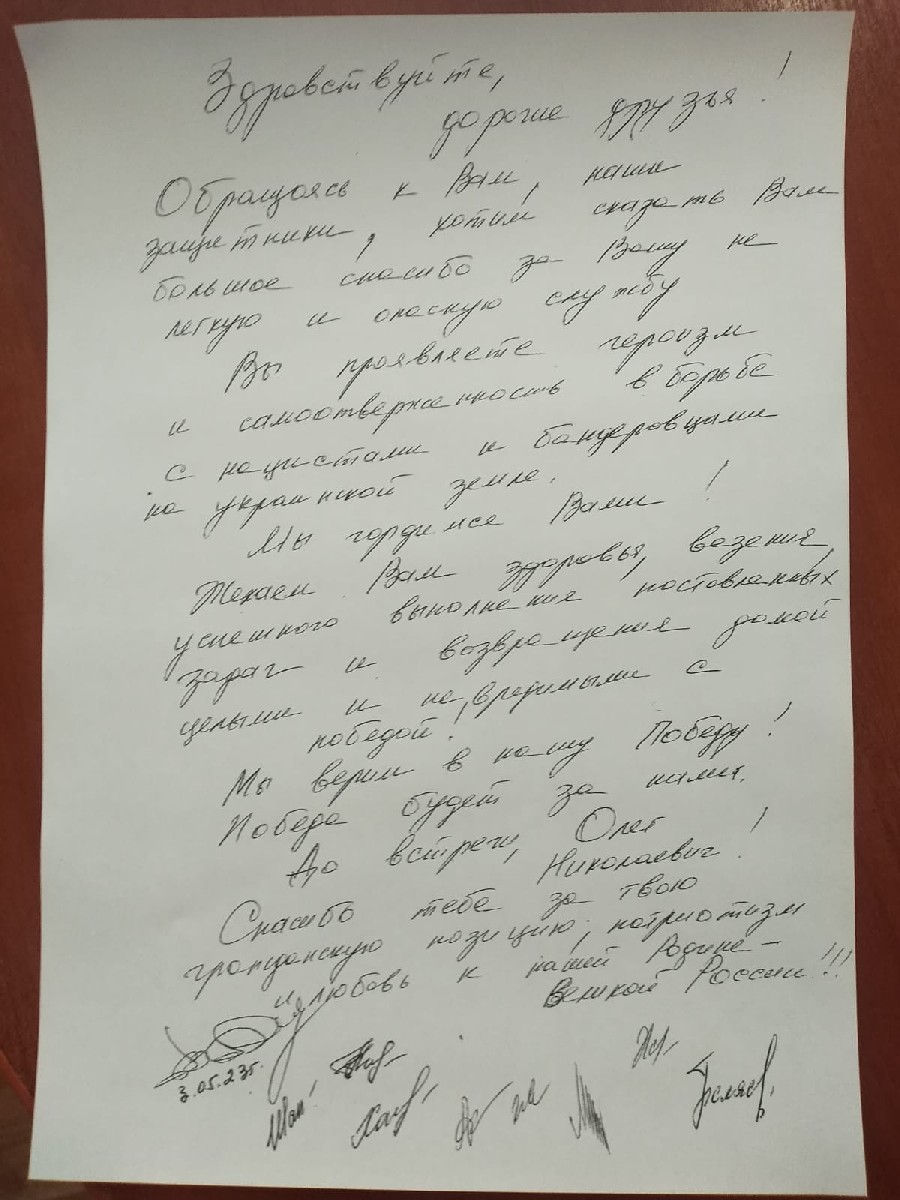 Здравствуйте,
дорогие друзья!
Обращаясь к Вам, наши
защитники, хотим сказать Вам
большое спасибо за Вашу не
легкую и опасную службу
Вы проявляете героизм
и самоотверженность в борьбе
с нацистами и бандеровцами
на украинской земле.
Мы гордимся Вами!
Желаем Вам здоровья, везения,
успешного выполнения поставленных
задач и возвращения домой
целыми и не вредимыми с
победой!
Мы верим в нашу Победу!
Победа будет за нами.
До встречи, Олег
Николаевич!
Спасибо тебе за твою
гражданскую позицию, патриотизм
и любовь к нашей Родине –
Великой России!!!
3.05.23г.